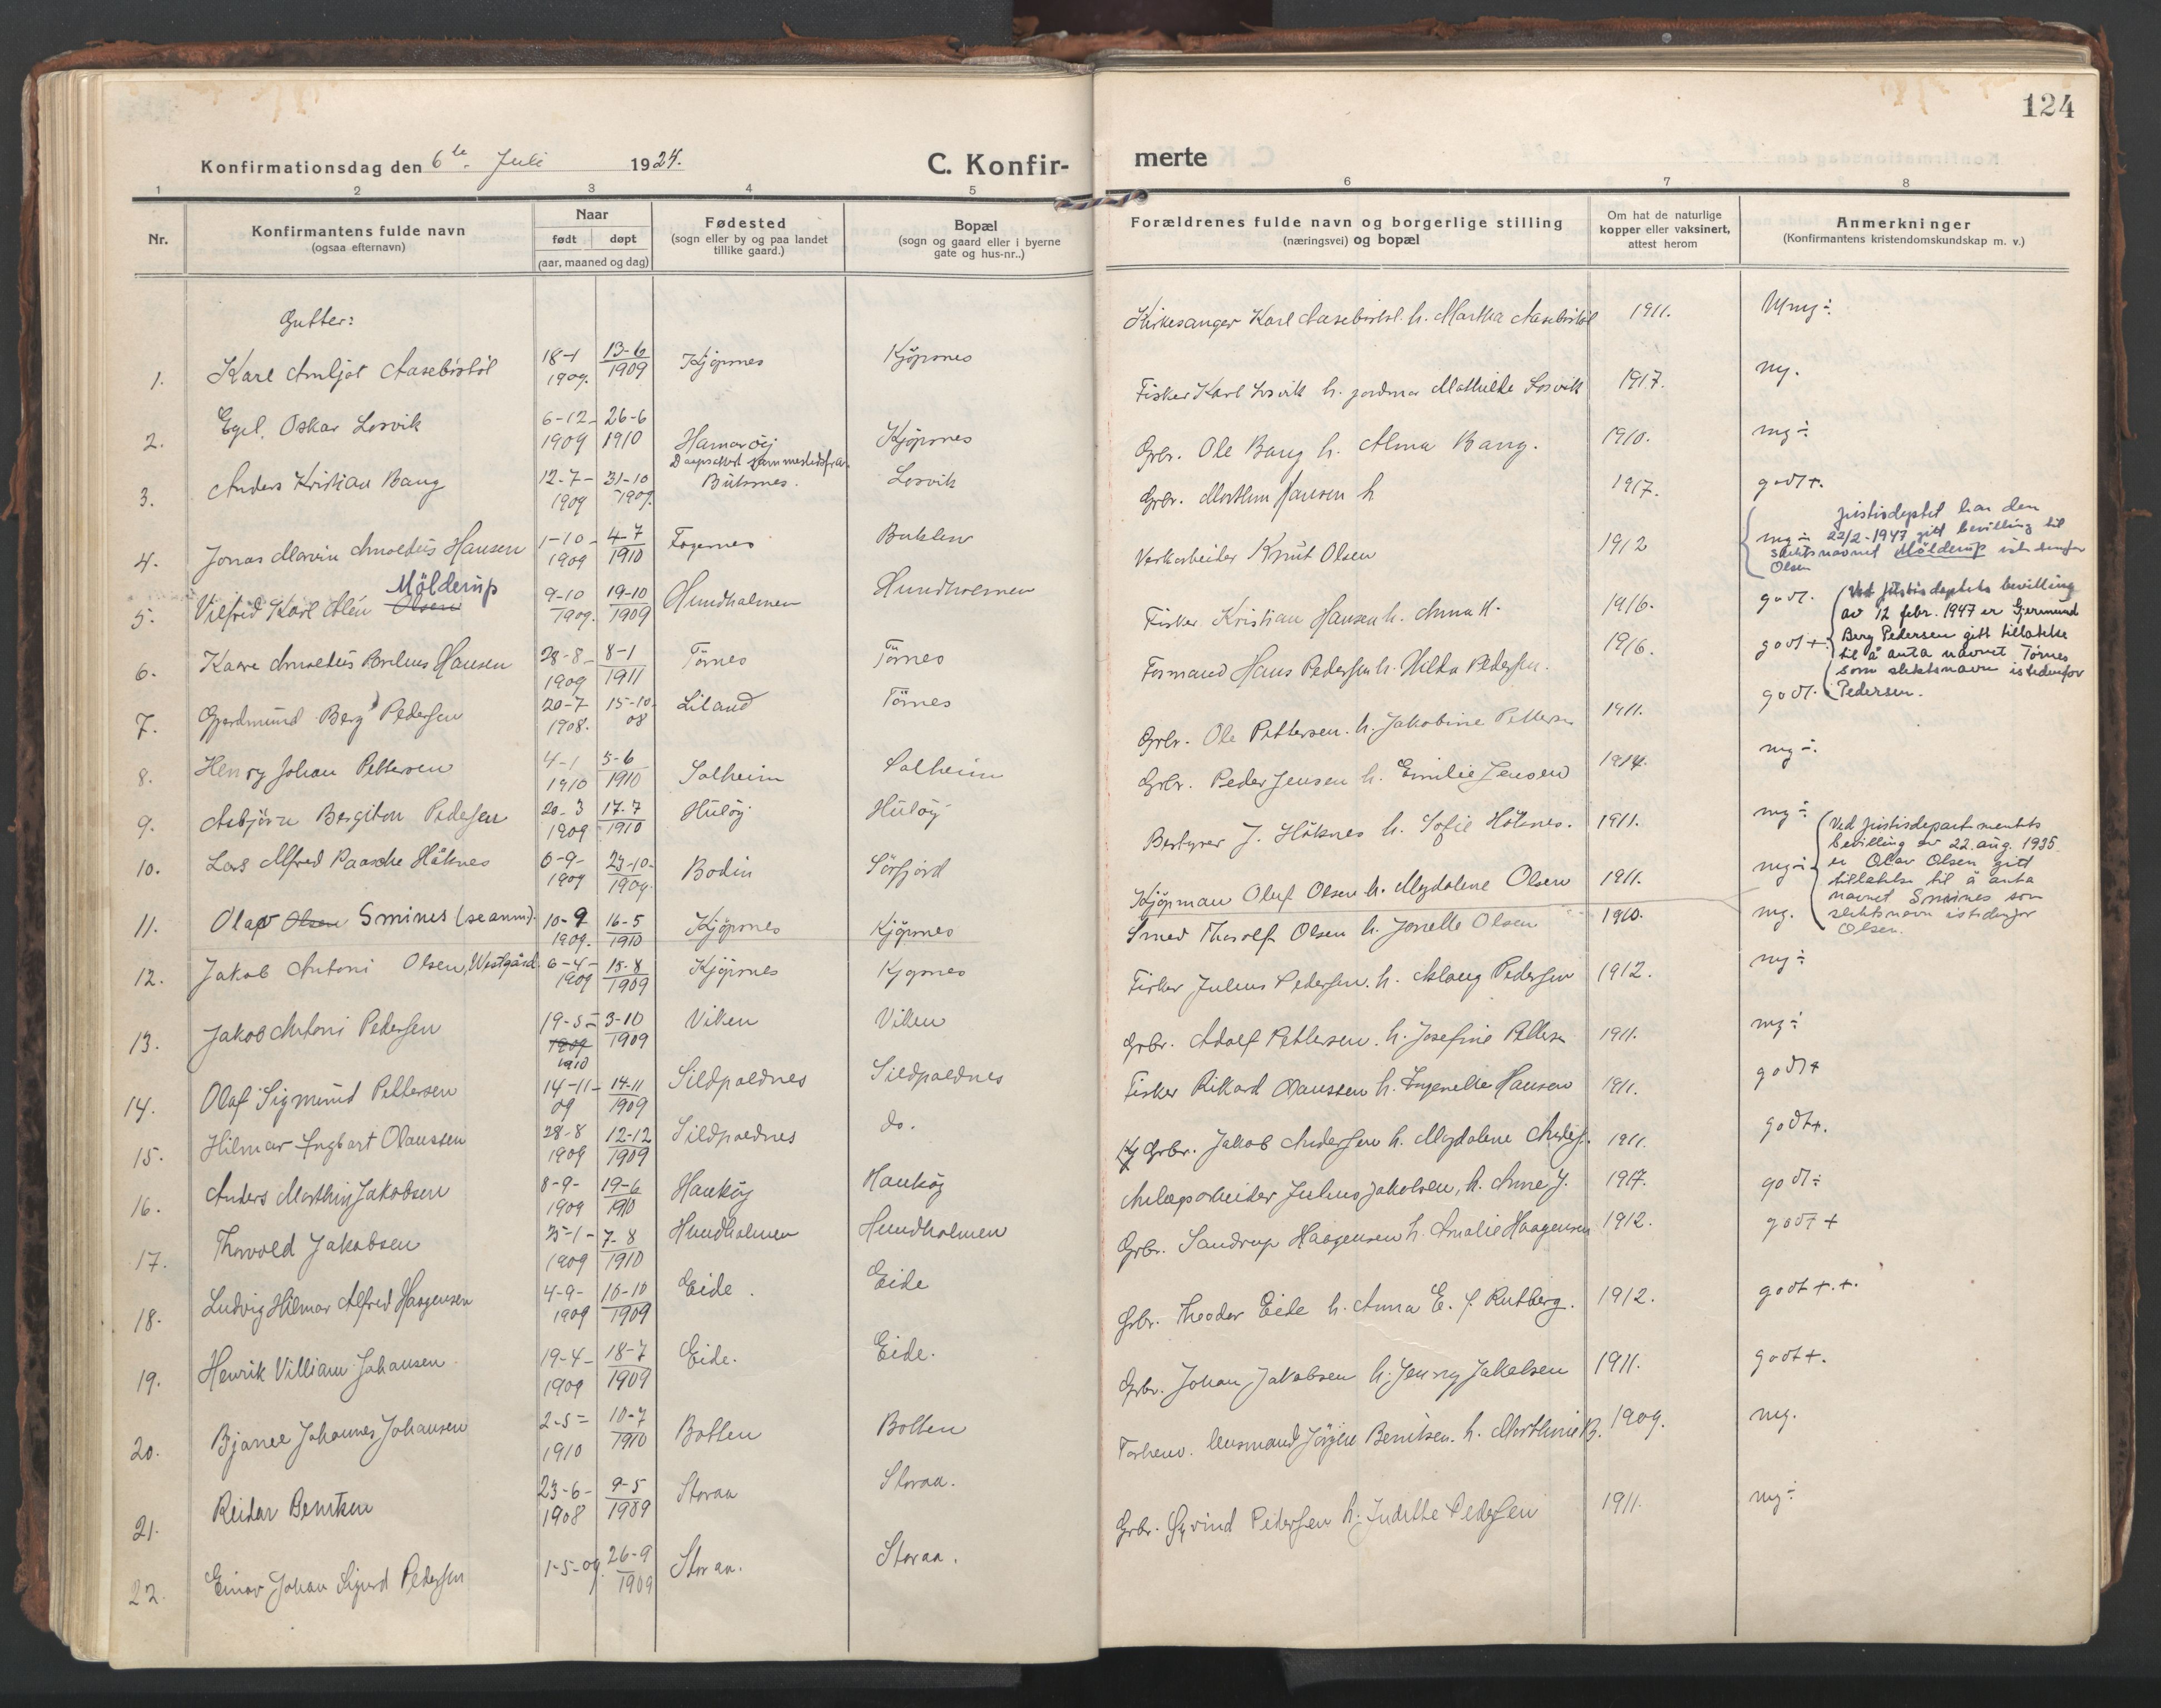 124
Konfirmationsdag den 6te Juli 1924.
C. Konfir-
merte
1 2 3 4 5
6 7 8
Nr.
Konfirmantens fulde navn
(ogsaa efternavn)
Naar
født døpt
(aar, maaned og dag)
Fødested
(sogn eller by og paa landet
tillike gaard.)
Bopæl
(sogn og gaard eller i byerne
gate og hus-nr..)
Forældrenes fulde navn og borgerlige stilling
(næringsvei) og bopæl
Om hat de naturlige
kopper eller vaksinert,
attest herom
Anmerkninger
(Konfirmantens kristendomskundskap m. v.)
Gutter:
1. Karl 18-1 1909. 13-6 1909 Kjöpsnes Kjöpsnes
2. Egil Oskar Losvik 6-12- 1909 26-6 1910 Hamaröy Kjöpsnes
3. Anders Kristian Bang 12-7- 1909 31-10 1909. Losvik
4. Jonas Marvin Arnoldus Hansen 1-10- 1909 4-7 1910 Fagernes
5. Vilfrid Karl Olsen Mölderup 9-10 1909. 19-10 1909 Hundholmen Hundholmen
6. Kaare Arnoldus Hansen 28-8- 1909 8-1 1911 Törnes Törnes
7. Gjerdmund Berg Pedersen 20-7 1908. 15-10- 08 Liland Törnes
8. Henry Johan Pettersen 4-1 1910 5-6 1910 Solheim Solheim
9. Asbjörn Bergiton Pedersen 20-3 1909 17-7 1910 Hulöy Hulöy
10. Lars Alfred Paasche Höknes 6-9- 1909 23-10- 1909. Bodin Sörfjord
11. Olav Olsen Smines (se anm). 10-9 1909. 16-5 1910 Kjöpsnes Kjöpsnes
12. Jakob Antoni Olsen, Westgård 6-4- 1909 15-8 1909 Kjöpsnes Kjöpsnes
13. Jakob Antoni Pedersen 19-5- 1909 1910 3-10 1909 Viken Viken
14. Olaf Sigmund Pettersen 14-11- 09 14-11 1909 Sildpoldnes Sildpoldnes
15. Hilmar Ingbart Olaussen 28-8 1909 12-12 1909 Sildpoldnes do.
16. Anders Marthin Jakobsen 8-9- 1909 19-6 1910 Hauköy Hauköy
17. Thorvald Jakobsen 25-1- 1909 7-8 1910 Hundholmen Hundholmen
18. Ludvig Hilmar Alfred Haagensen 4-9- 1909 10-10 1909 Eide. Eide
19. Henrik Villiam Johansen. 19-4- 1909 18-7 1909 Eide. Eide.
20. Bjarne Johannes Johansen 2-5- 1910 10-7 1910 Botten Botten
21. Reidar Berntsen 23-6- 1908 9-5 1909 Storaa Storaa.
22. Einar Johan Sigurd Pedersen 1-5-09. 26-9 1909 Storaa. Storaa.
Kirkesanger Karl h. Martha 1911. Mmg÷
Fisker Karl Losvik h. jordmor Mathilde Losvik 1917. mg.
Grbr. Ole Bang h. Alma Bang. 1910. mg÷
Grbr. Morthen Hansen h 1917. godt+.
Verkarbeider Knut Olsen 1912 mg÷
Justisdeptet har den
22/2-1947 gitt bevilling til
slektsnavnet Mölderup istedenfor
Olsen
Fisker Kristian Hansen h. Anna H. 1916. godt.
Formand Hans Pedersen h. Hilda Pedersen. 1916. godt+
Ved Justisdeptets bevilling
av 12 febr. 1947 er Gjermund
Berg Pedersen gitt tillatelse
til å anta navnet Törnes
som slektsnavn istedenfor
Pedersen.
godt.
Grbr. Ole Pettersen h. Jakobine Pettersen 1911. mg÷.
Grbr. Peder Jensen h. Emilie Jensen 1914.
Bestyrer J. Höknes h. Sofie Höknes. 1911. mg÷
Kjöpman Oluf Olsen h. Magdalene Olsen 1911. mg÷
Ved Justisdepartementets
bevilling av 22. aug. 1935
er Olav Olsen gitt
tillatelse til å anta
navnet Smines som
slektsnavn istedenfor
Olsen.
Smed Thorolf Olsen h. Jonette Olsen 1910. mg.
Fisker Julius Pedersen h. Aslaug Pedersen 1912. mg÷
Grbr. Adolf Pettersen. h. Josefine Pettersen 1911. mg÷
Fisker Rikard Olaussen h. Ingenelie Hansen 1911. godt+
Grbr. Jakob Andersen h. Magdalene Anders. 1911. godt+.
Anlægsarbeider Julius Jakobsen, h. Anne J. 1917. godt÷
Grbr. Sandrup Haagensen h. Amalie Haagensen 1912. godt+
Grbr. Theodor Eide h. Anna E. f. Rutberg. 1912. godt+.+.
Grbr. Johan Jakobsen h. Jenny Jakobsen 1911. godt+.
Forhenv. lensmand Jörgen Berntsen. h. Marthine B. 1909. mg.
Grbr. Eyvind Pedersen h. Judithe Pedersen 1911. mg÷